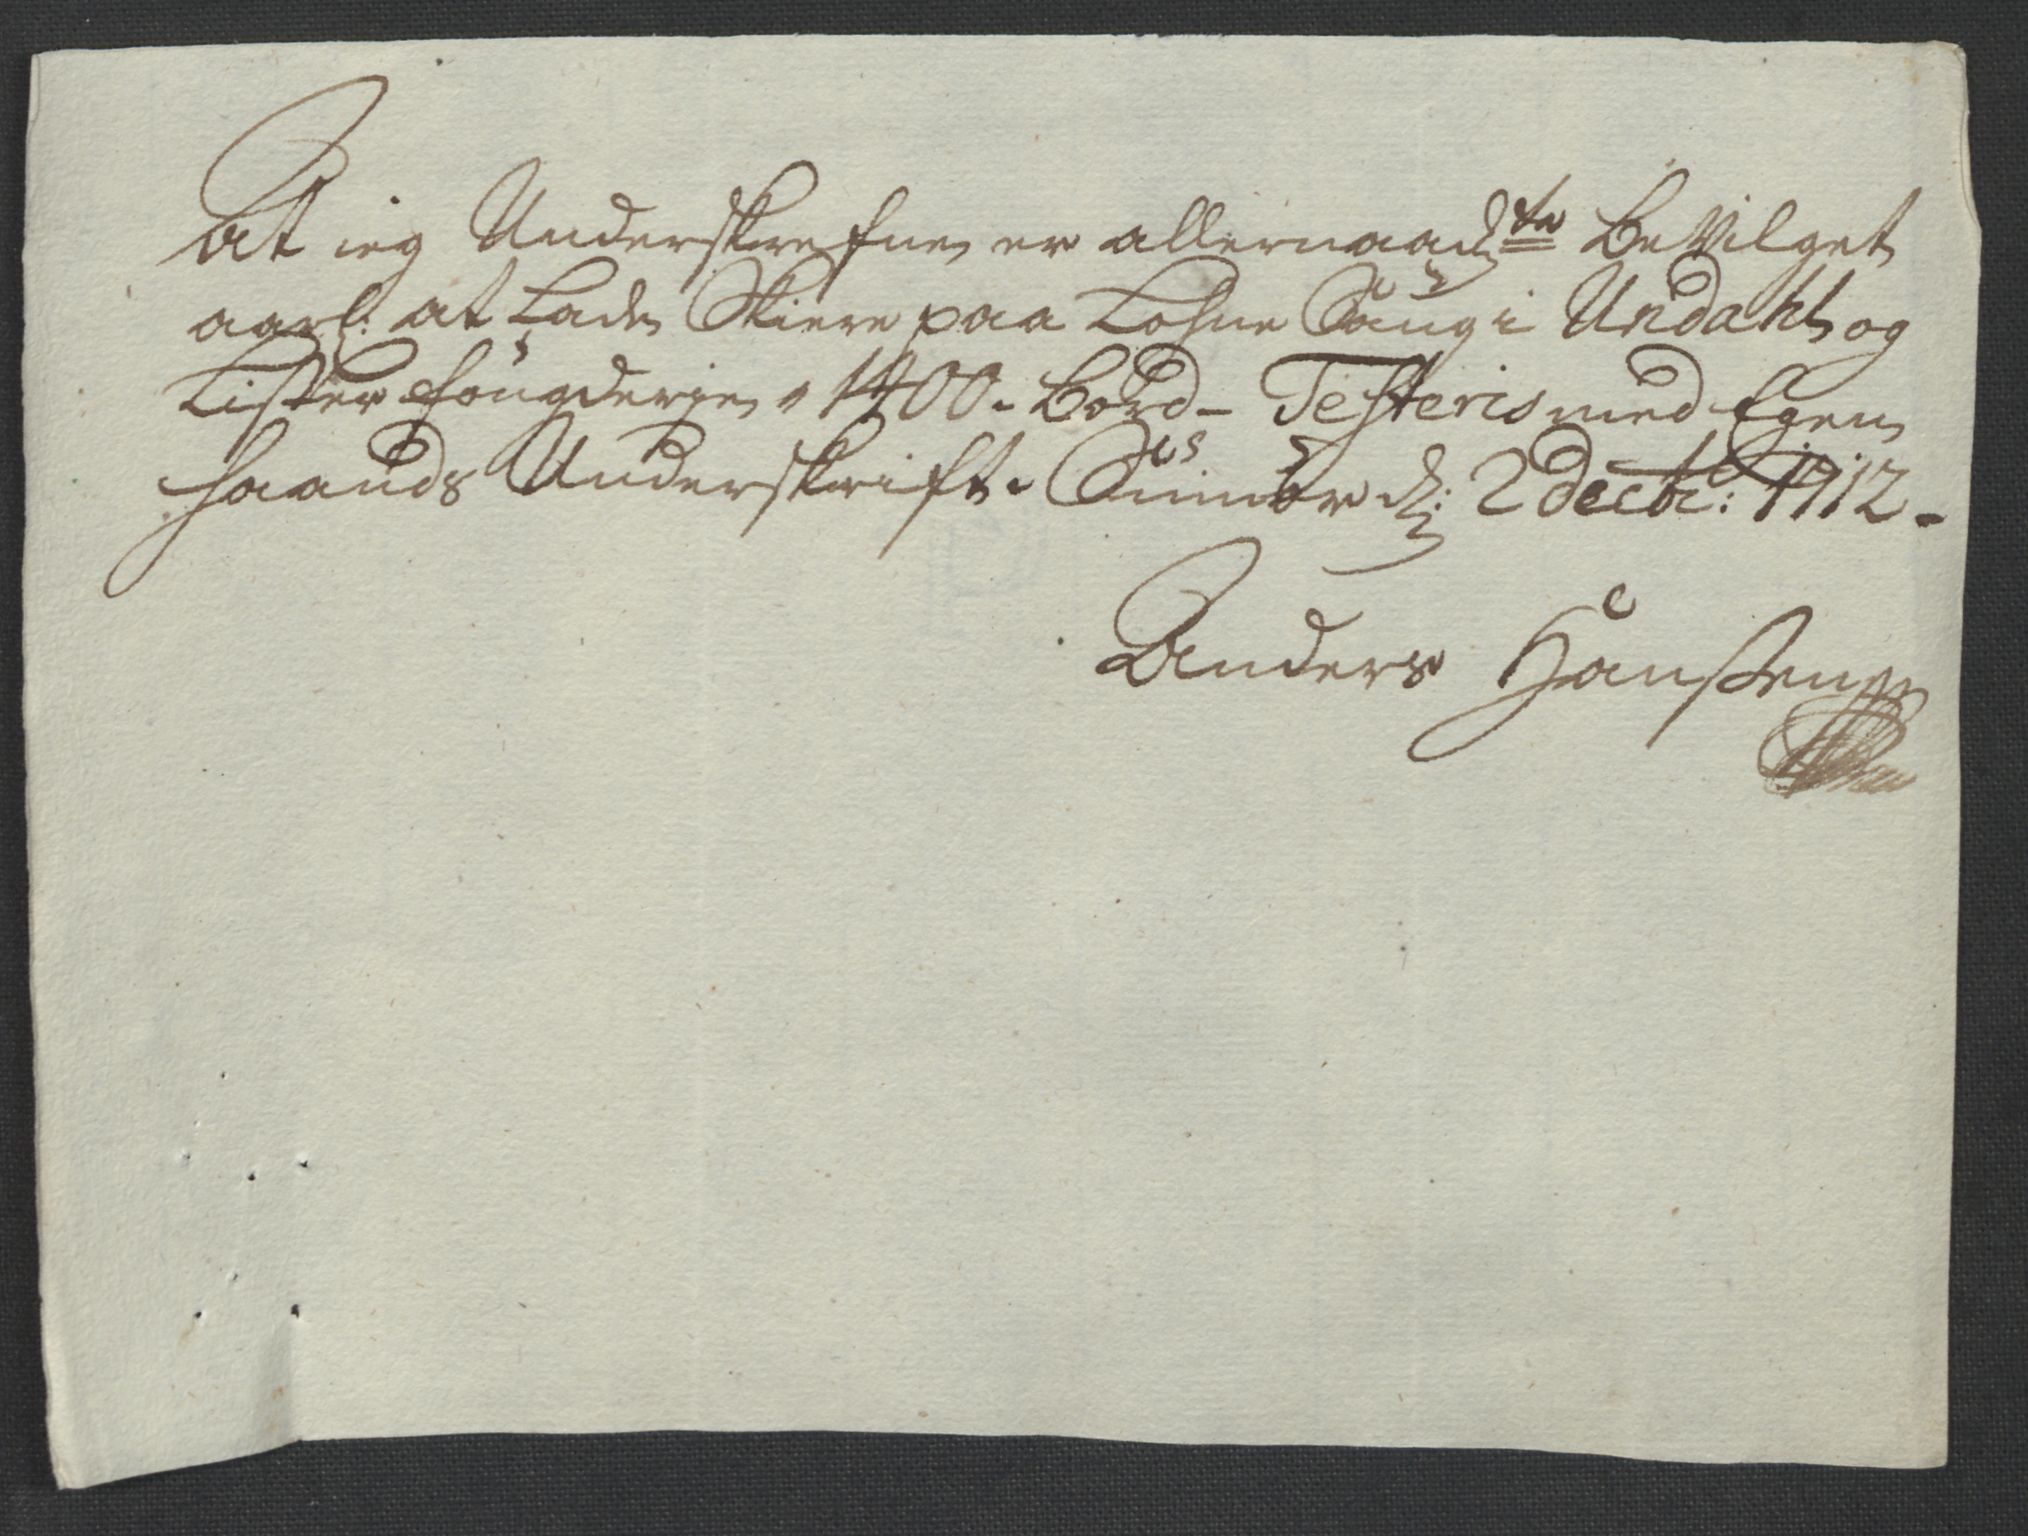 At ieg Underskrefne er allernaad:ste beVilget
aarl: at Lade Skiere paa Lohne Saug i Undahl og
Lister fougderje 1400. bord - Testeris med Egen
haands Underskrift. d: 2 decbr: 1712.
Anders Hanßen